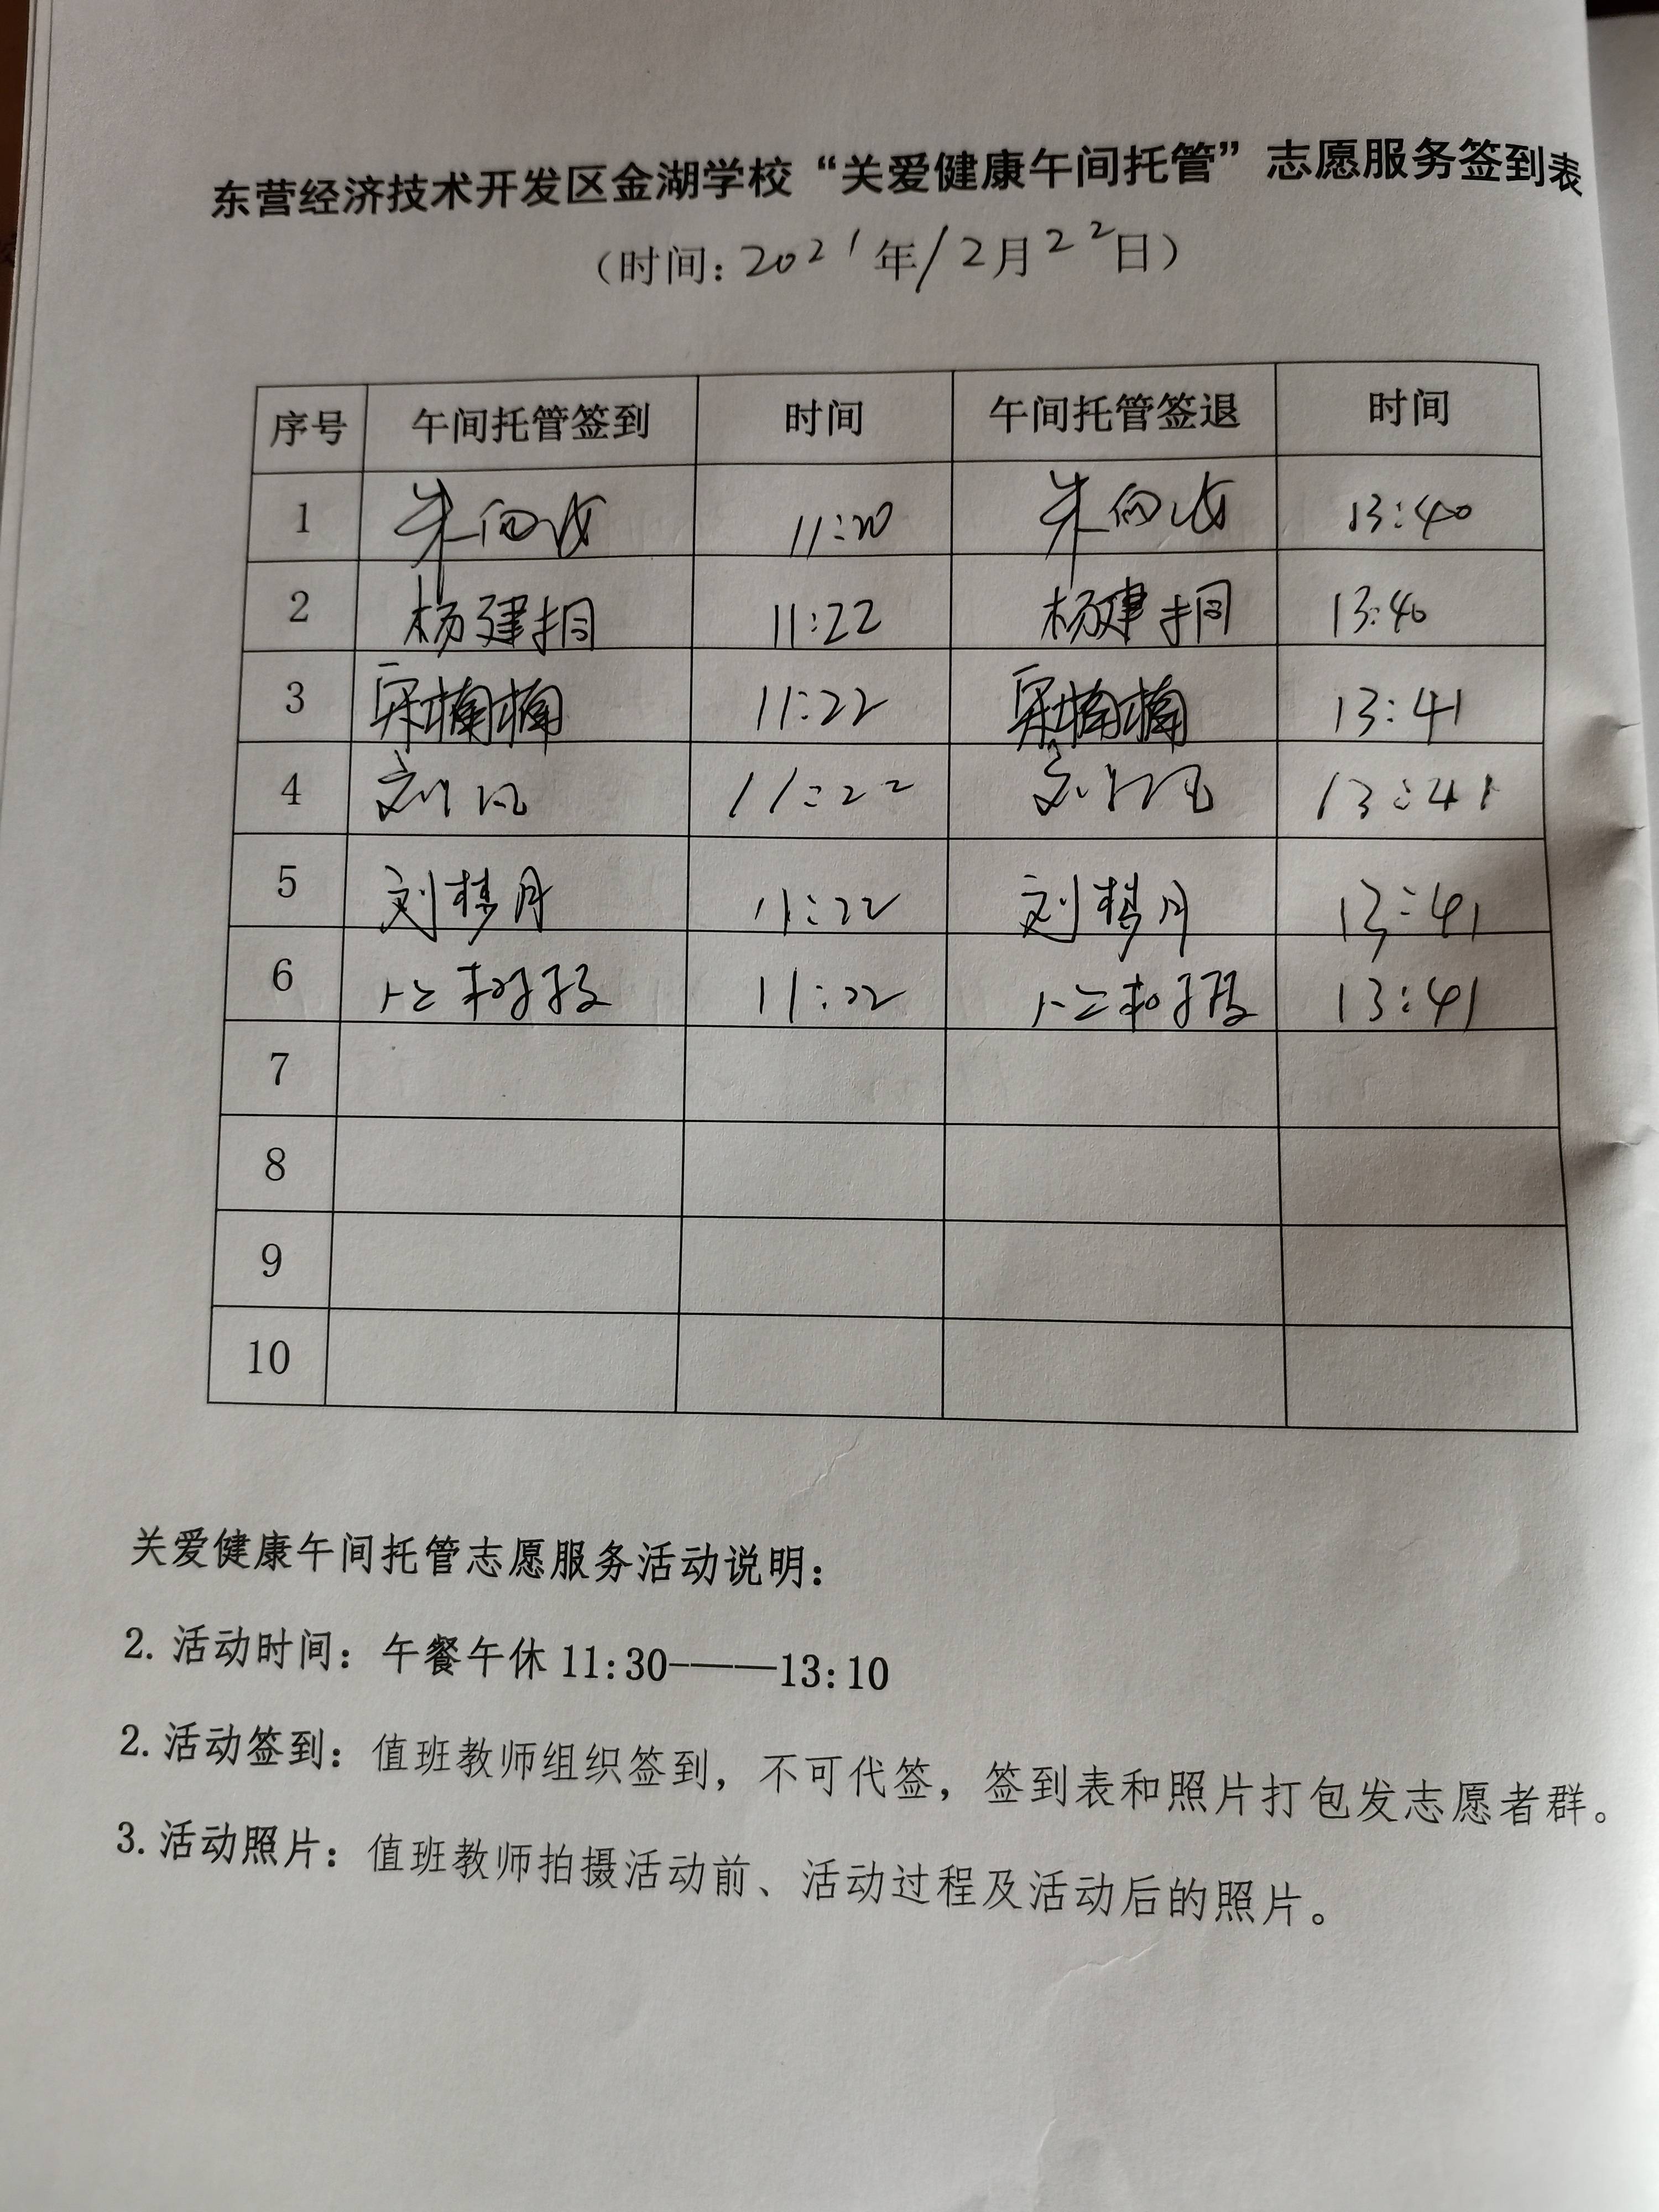 东营经济技术开发区金湖学校“关爱健康午间托管”志愿服务签到表
（时间：2021年12月22日）
序号 午间托管签到 时间 午间托管签退 时间
1 朱向 11:20 朱向 13:40
2 杨建桐 11:22 杨建桐 13:40
3 宋楠楠 11:22 宋楠楠 13:41
4 刘 11:22 刘 13:41
5 刘梦月 11:22 刘梦月 13:41
6 11:22 13:41
7
8
9
10
关爱健康午间托管志愿服务活动说明：
2. 活动时间：午餐午休 11:30-———13:10
2. 活动签到：值班教师组织签到，不可代签，签到表和照片打包发志愿者群。
3. 活动照片：值班教师拍摄活动前、活动过程及活动后的照片。